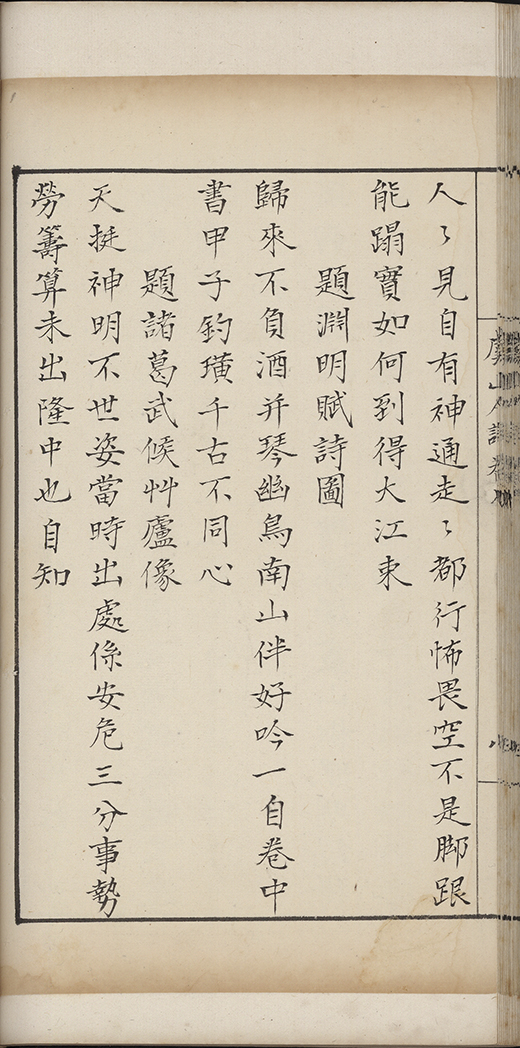 人〻見自有神通走〻都行怖畏空不是脚跟
能蹋實如何到得大江東
題淵明賦詩圖
歸來不負酒并琴幽鳥南山伴好吟一自卷中
書甲子釣璜千古不同心
題諸葛武候艸廬像
天挺神明不世姿當時出處係安危三分事勢
勞籌算未出隆中也自知